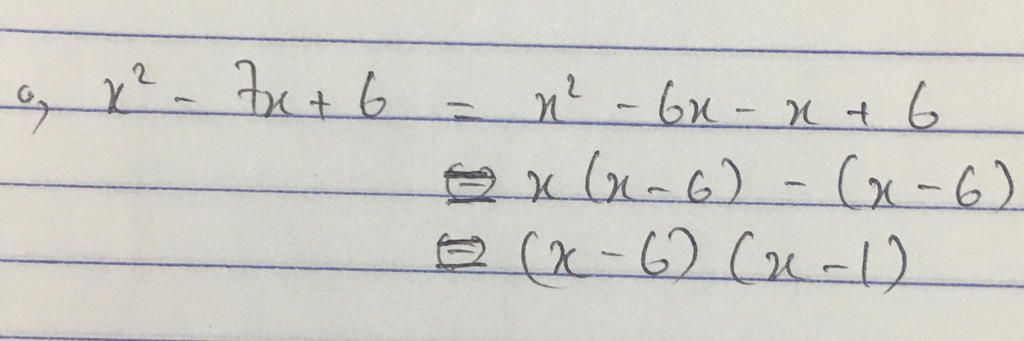 a, x² - 7x + 6 = x² - 6x - x + 6
= x (x - 6) - (x - 6)
= (x - 6) (x - 1)